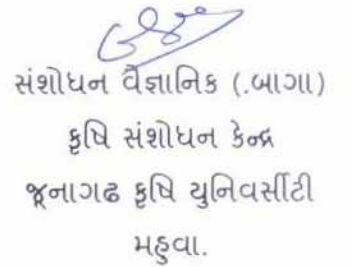 સંશોધન વૈજ્ઞાનિક (.બાગા)
કૃષિ સંશોધન કેન્દ્ર
જૂનાગઢ કૃષિ યુનિવર્સીટી
મહુવા.